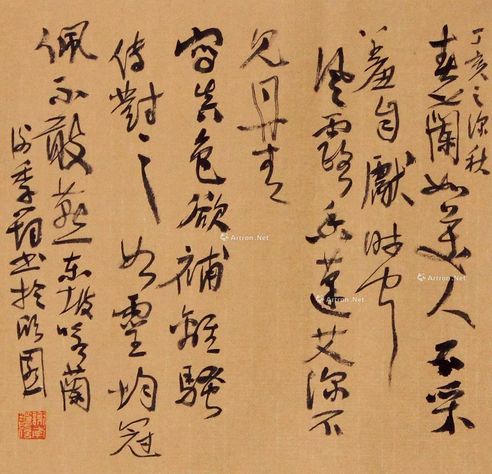 丁亥之深秋
春蘭如美人不采
羞自獻時聞
風露香蓬艾深不
見丹青
寫真色欲補離騷
傳對之如靈均冠
佩不敢燕東坡咏蘭
季書於園
Artron.Net
Artron.Net
Artron.Net